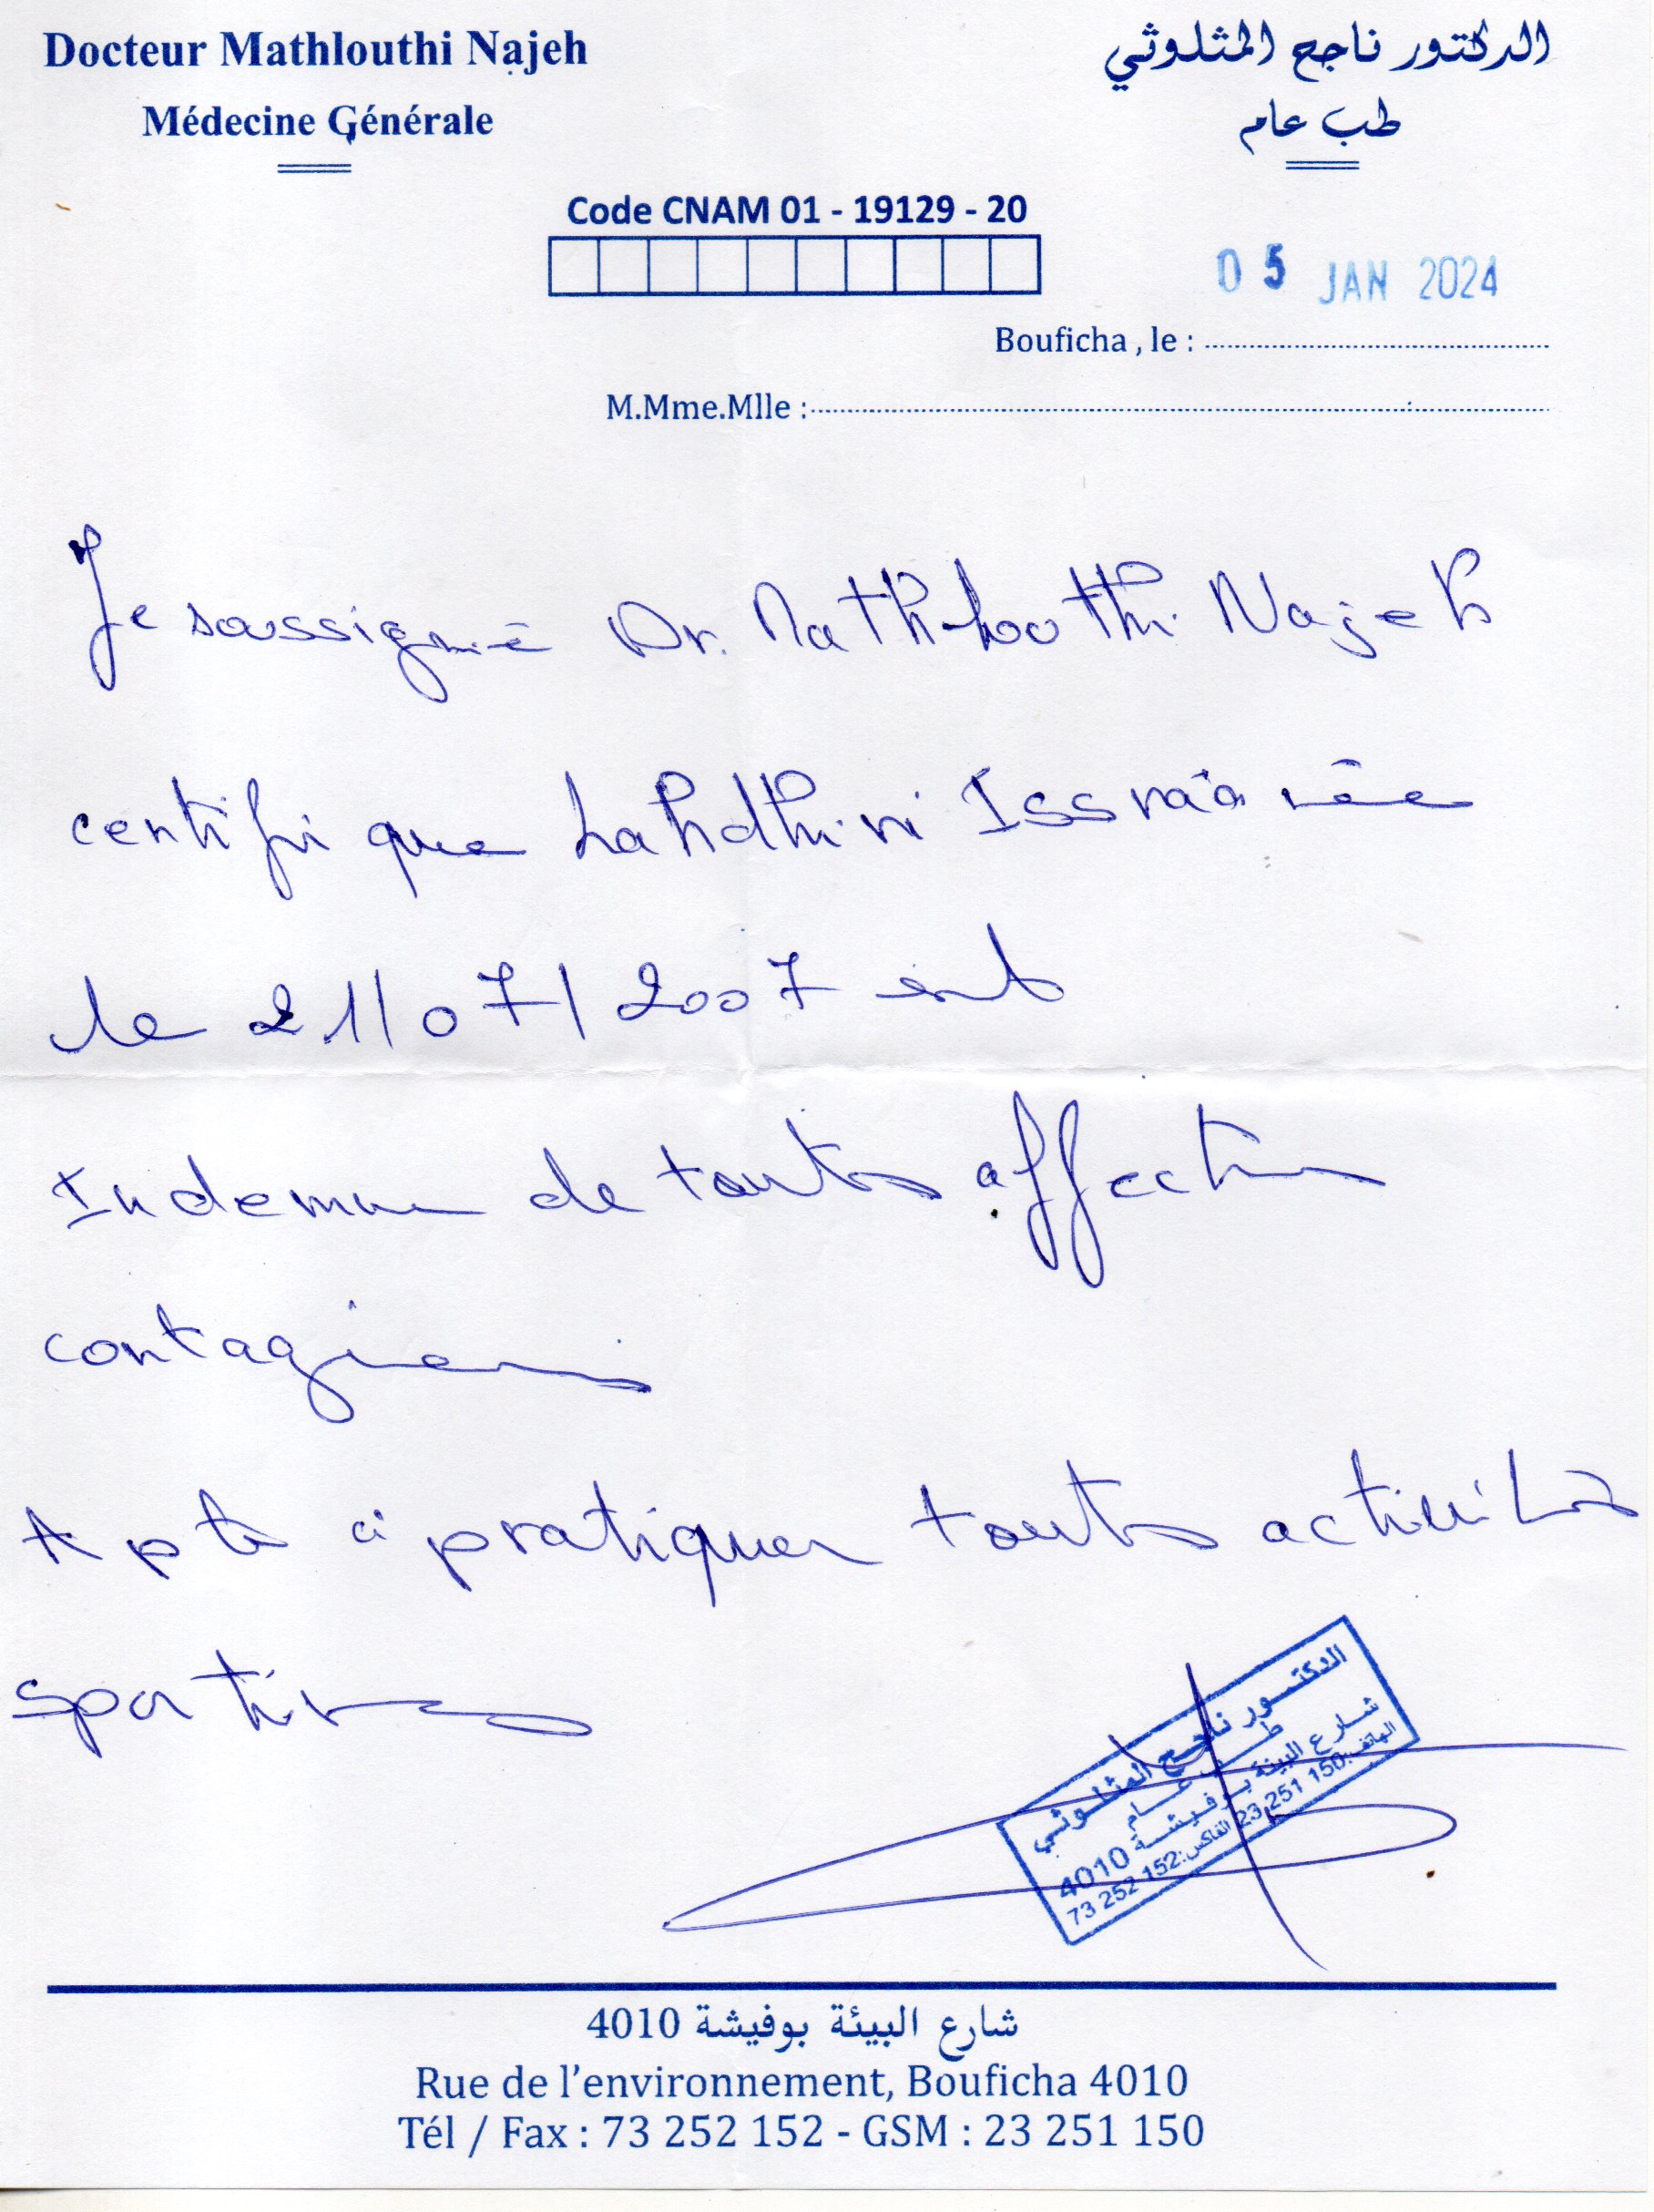 Docteur Mathlouthi Najeh
Médecine Générale
الدكتور ناجح المثلوثي
طب عام
Code CNAM 01 - 19129 - 20
05 JAN 2024
Bouficha , le :
M.Mme.Mlle :
Je soussigné Dr. Mathlouthi Najeh
certifi que Lahdhiri Issraa née
le 21/07/2007 est
Indemne de toutes affection
contagieuses
Apte à pratiquer toutes activités
sportives
الدكتور ناجح المثلوثي
طب عام
شارع البيئة بوفيشة 4010
الهاتف:150 251 23 الفاكس:152 252 73
شارع البيئة بوفيشة 4010
Rue de l'environnement, Bouficha 4010
Tél / Fax : 73 252 152 - GSM : 23 251 150